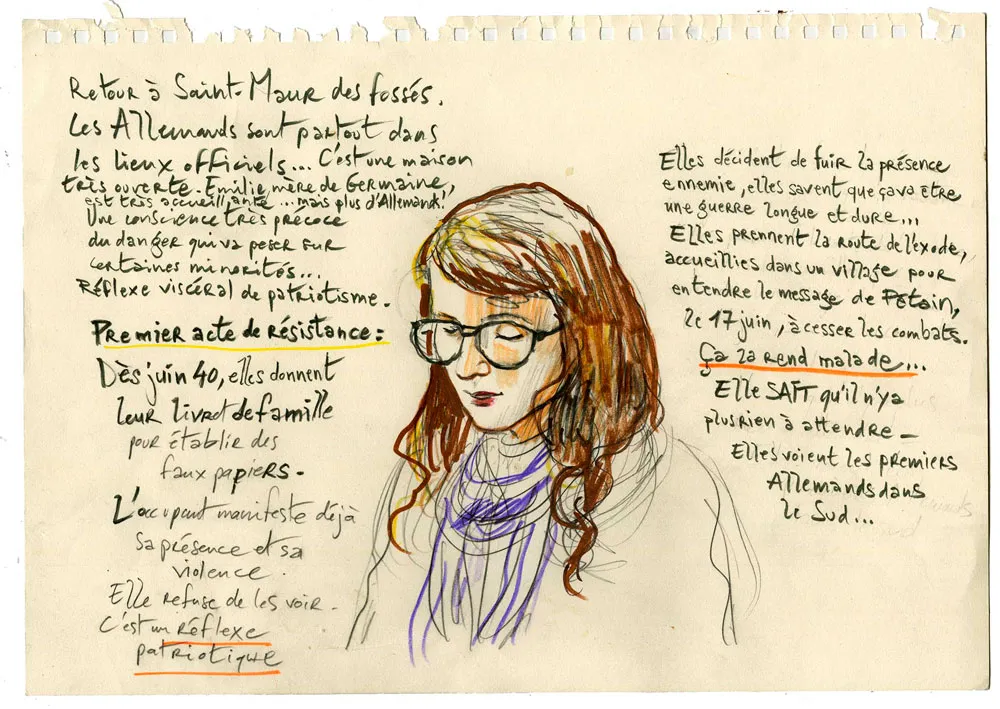 Retour à Saint-Maur des fossés.
Les Allemands sont partout dans
les lieux officiels... C'est une maison
très ouverte. Emilie, mère de Germaine,
est très accueillante ... mais plus d'Allemands!
Une conscience très précoce
du danger qui va peser sur
certaines minorités...
Réflexe viscéral de patriotisme.
Premier acte de résistance :
Dès juin 40, elles donnent
leur livret de famille
pour établir des
faux papiers -
L'occupant manifeste déjà
sa présence et sa
violence.
Elle refuse de les voir -
C'est un réflexe
patriotique
Elles décident de fuir la présence
ennemie, elles savent que ça va être
une guerre longue et dure...
Elles prennent la route de l'exode,
accueillies dans un village pour
entendre le message de Pétain,
le 17 juin, à cesser les combats.
Ça la rend malade...
Elle SAIT qu'il n'y a
plus rien à attendre -
Elles voient les premiers
Allemands dans
le Sud...